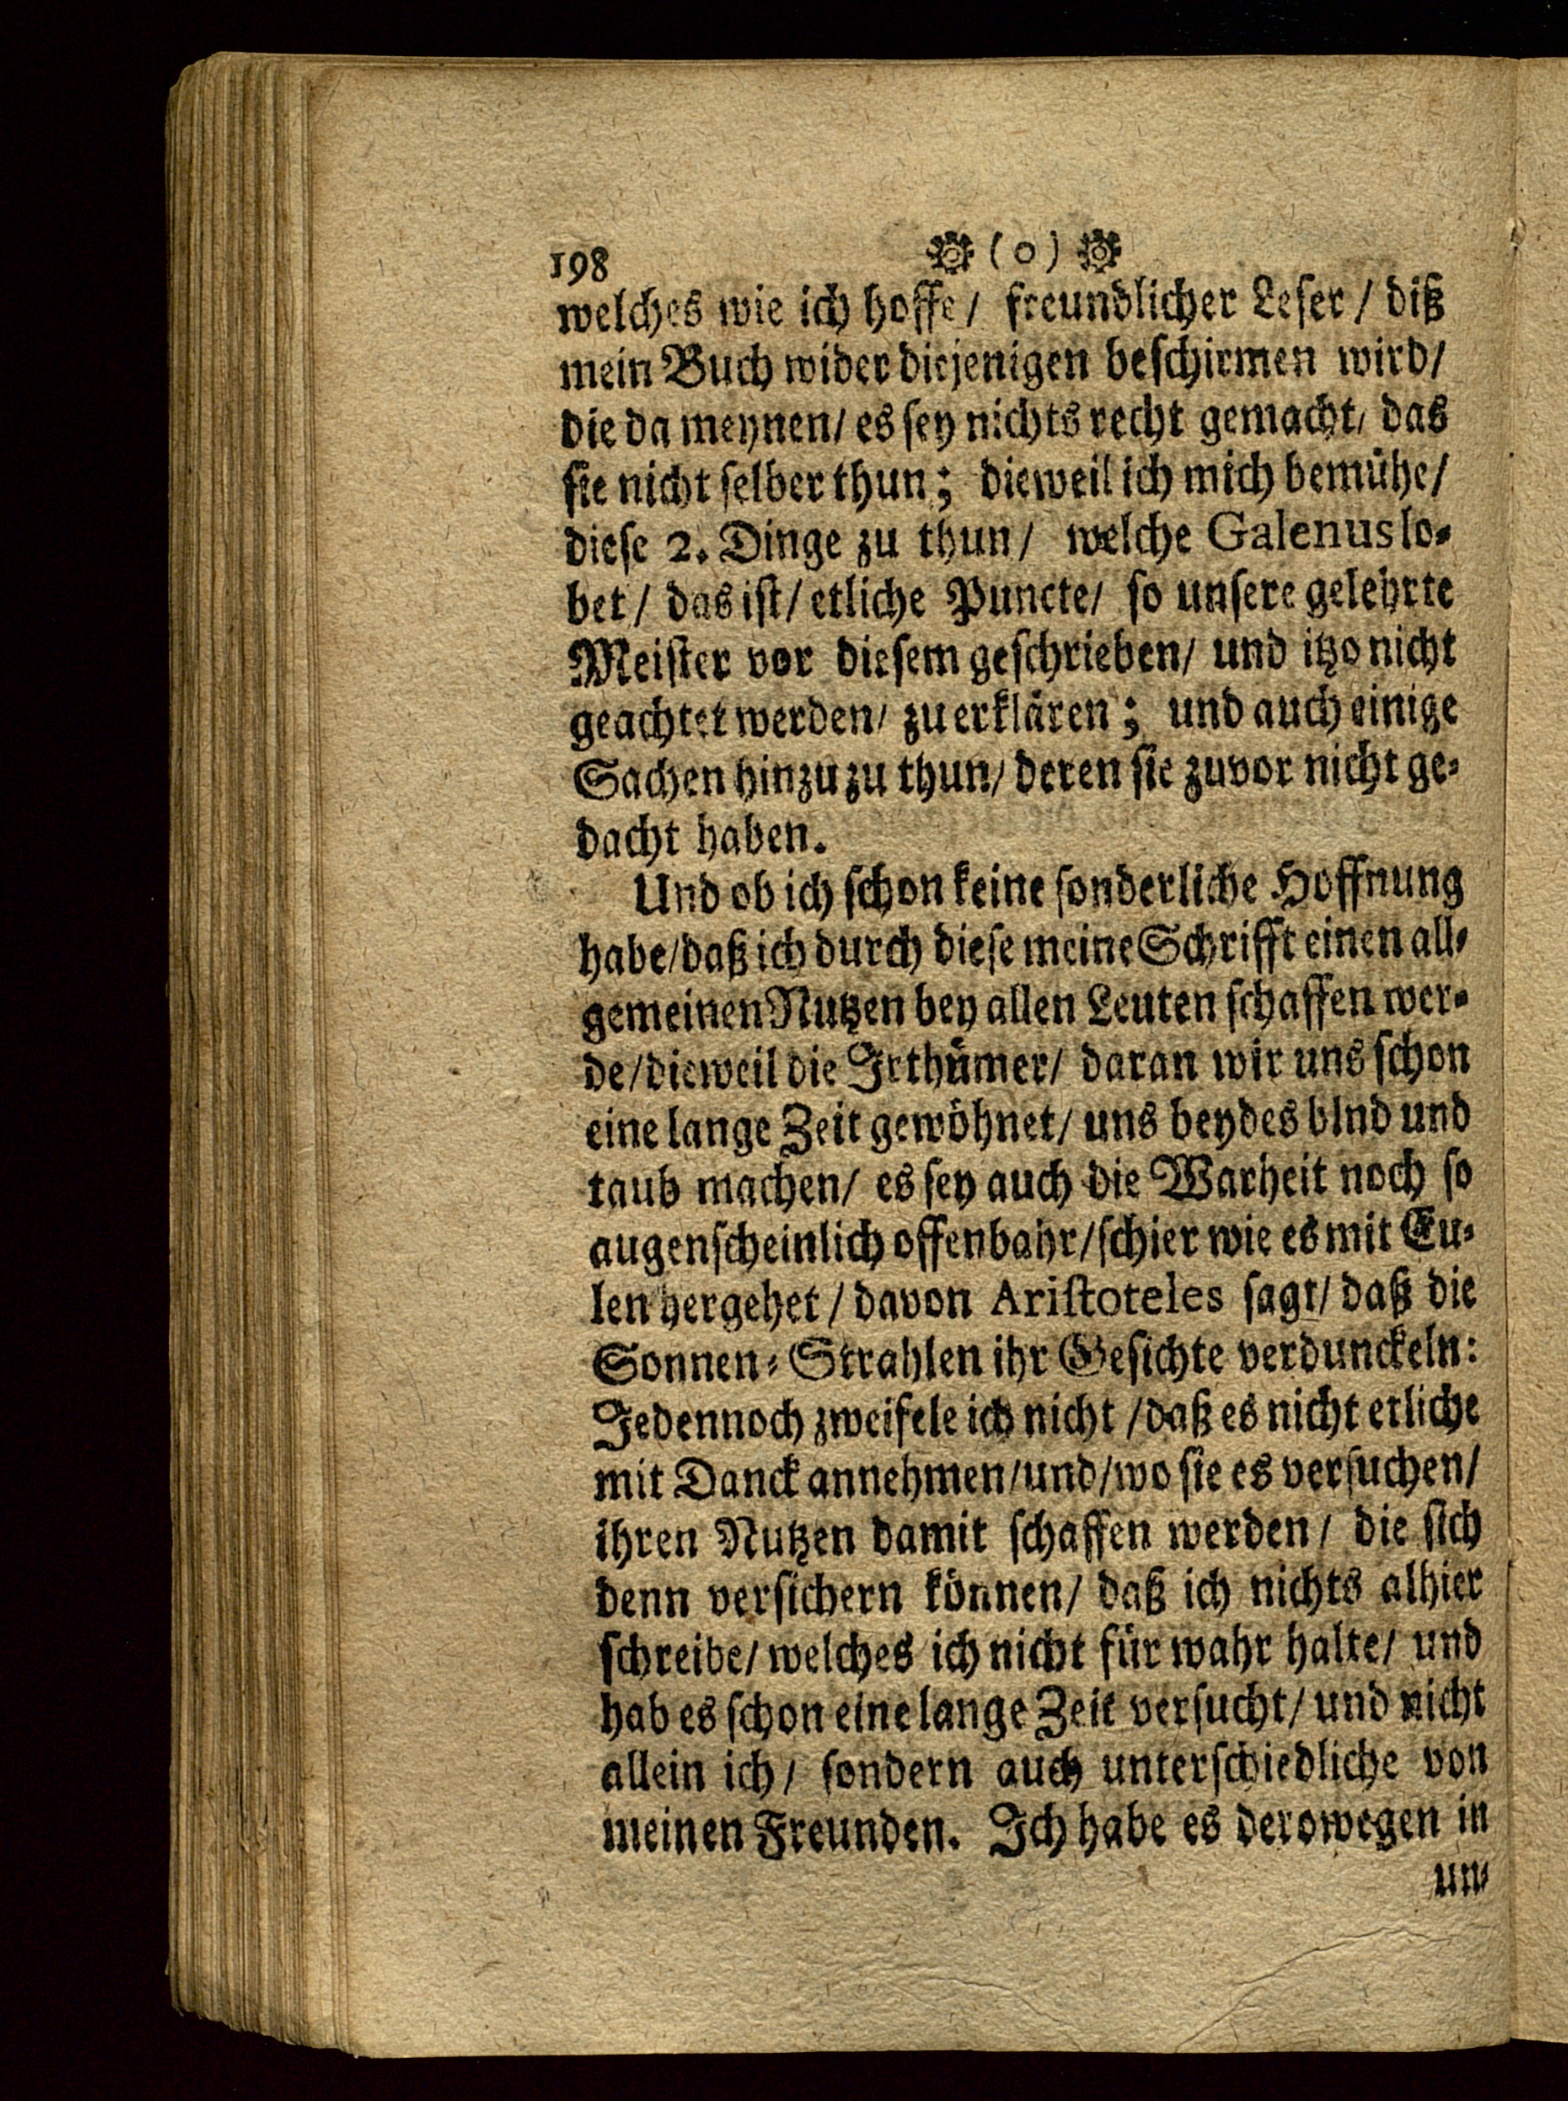 198 (o)
welches wie ich hoffe/ freundlicher Leser/ diß
mein Buch wider diejenigen beschirmen wird/
die da meynen/ es sey nichts recht gemacht/ das
sie nicht selber thun; dieweil ich mich bemühe/
diese 2. Dinge zu thun/ welche Galenus lo-
bet/ das ist/ etliche Puncte/ so unsere gelehrte
Meister vor diesem geschrieben/ und itzo nicht
geachtet werden/ zu erklären; und auch einige
Sachen hinzu zu thun/ deren sie zuvor nicht ge-
dacht haben.
Und ob ich schon keine sonderliche Hoffnung
habe/ daß ich durch diese meine Schrifft einen all-
gemeinen Nutzen bey allen Leuten schaffen wer-
de/ dieweil die Irthümer/ daran wir uns schon
eine lange Zeit gewöhnet/ uns beydes blnd und
taub machen/ es sey auch die Warheit noch so
augenscheinlich offenbahr/ schier wie es mit Eu-
len hergehet/ davon Aristoteles sagt/ daß die
Sonnen-Strahlen ihr Gesichte verdunckeln:
Jedennoch zweifele ich nicht/ daß es nicht etliche
mit Danck annehmen/ und/ wo sie es versuchen/
ihren Nutzen damit schaffen werden/ die sich
denn versichern können/ daß ich nichts alhier
schreibe/ welches ich nicht für wahr halte/ und
hab es schon eine lange Zeit versucht/ und nicht
allein ich/ sondern auch unterschiedliche von
meinen Freunden. Ich habe es derowegen in
un-